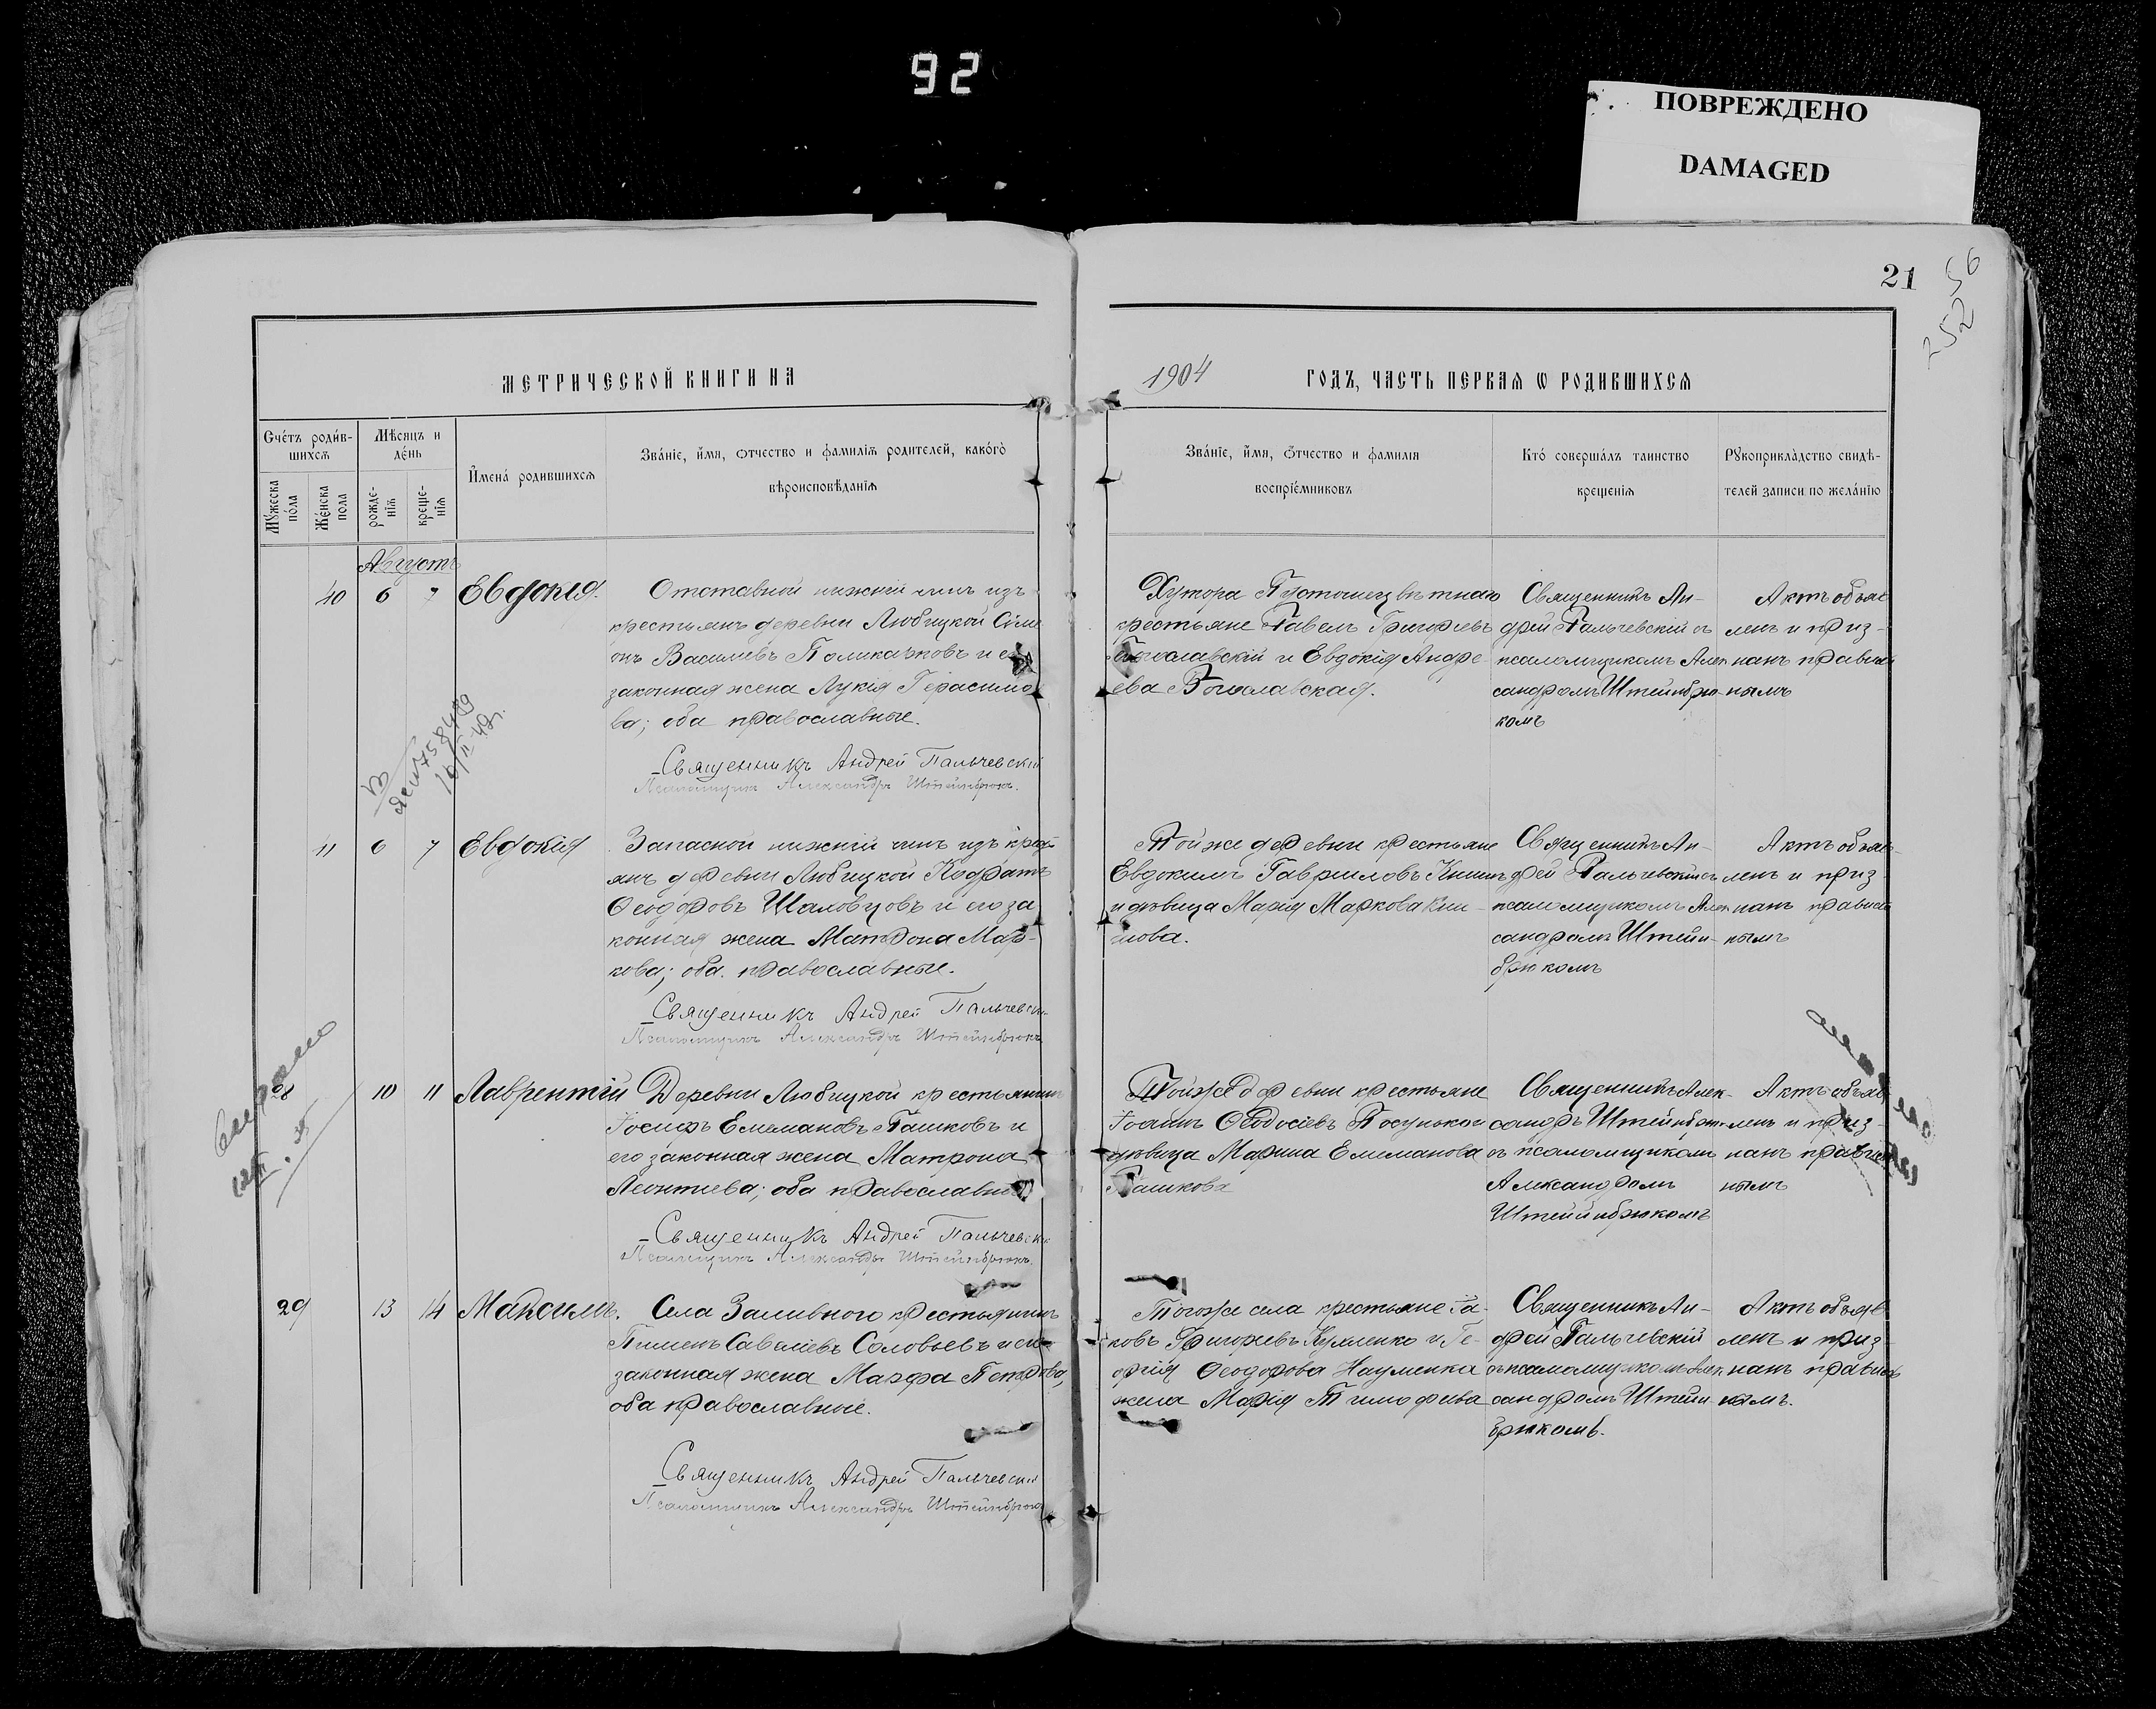 92
ПОВРЕЖДЕНО
DAMAGED
21
56
252
МЕТРИЧЕСКОЙ КНИГИ НА
1904 ГОДЪ, ЧАСТЬ ПЕРВАЯ Ѡ РОДИВШИХСЯ
Счетъ родив-
шихся
Мужеска
пола
Женска
пола
Мѣсяцъ и
день
рожде-
нія
креще-
нія
Имена родившихся
Званіе, имя, отчество и фамилія родителей, какого
вѣроисповѣданія
Званіе, имя, отчество и фамилія
воспріемниковъ
Кто совершалъ таинство
крещенія
Рукоприкладство свидѣ-
телей записи по желанію
Августъ
40 6 7 Евдокія.
Отставной нижній чинъ изъ
крестьянъ деревни Любицкой Симе
онъ Васильевъ Поликарповъ и его
законная жена Лукія Герасимо
ва; оба православные.
Священникъ Андрей Пальчевскій
Псаломщикъ Александръ Штейнбрюкъ.
Хутора Пустошецвѣтнаго
крестьяне Павелъ Григорьевъ
Богославскій и Евдокія Андре-
ева Богославская.
Священникъ Ан-
дрей Пальчевскій съ
псаломщикомъ Алек
сандромъ Штейнбрю-
комъ
Актъ объяв
ленъ и приз-
нанъ правиль
нымъ
11 6 7 Евдокія
Запасной нижній чинъ изъ крест
янъ деревни Любицкой Кодратъ
Ѳеодоровъ Шаховцовъ и его за
конная жена Матрона Мар-
кова; оба православные.
Священникъ Андрей Пальчевскій
Псаломщикъ Александръ Штейнбрюкъ
Той же деревни крестьяне
Евдокимъ Гавриловъ
и дѣвица Марія Маркова
Священникъ Ан-
дрей Пальчевскій съ
псаломщикомъ Алек
сандромъ Штейн-
брюкомъ
Актъ объяв-
ленъ и приз
нанъ правиль
нымъ
28 10 11 Лаврентій
Деревни Любицкой крестьянинъ
Іосифъ Емельановъ Пашковъ и
его законная жена Матрона
Леонтьева; оба православные
Священникъ Андрей Пальчевскі
Псаломщикъ Александръ Штейнбрюкъ.
Той же деревни крестьяне
Іоаннъ Ѳеодосіевъ
дѣвица Марина Емельанова
Пашкова
Священникъ Алек-
сандръ Штейнбрюк
съ псаломщикомъ
Александромъ
Штейнбрюкомъ
Актъ объяв
ленъ и приз-
нанъ правиль
нымъ
29 13 14 Максимъ.
Села Заливного крестьянинъ
Пименъ Савеліевъ Соловьевъ и его
законная жена Марфа Петрова,
оба православные.
Священникъ Андрей Пальчевскій
Псаломщикъ Александръ Штейнбрюкъ
Того же села крестьяне Іа-
ковъ Григорьевъ Кумленко и Ге-
оргія Ѳеодорова Науменка
жена Марія Тимофеева
Священникъ Ан-
дрей Пальчевскій
съ псаломщикомъ Алек
сандромъ Штейн-
брюкомъ.
Актъ объяв
ленъ и приз-
нанъ правиль
нымъ.